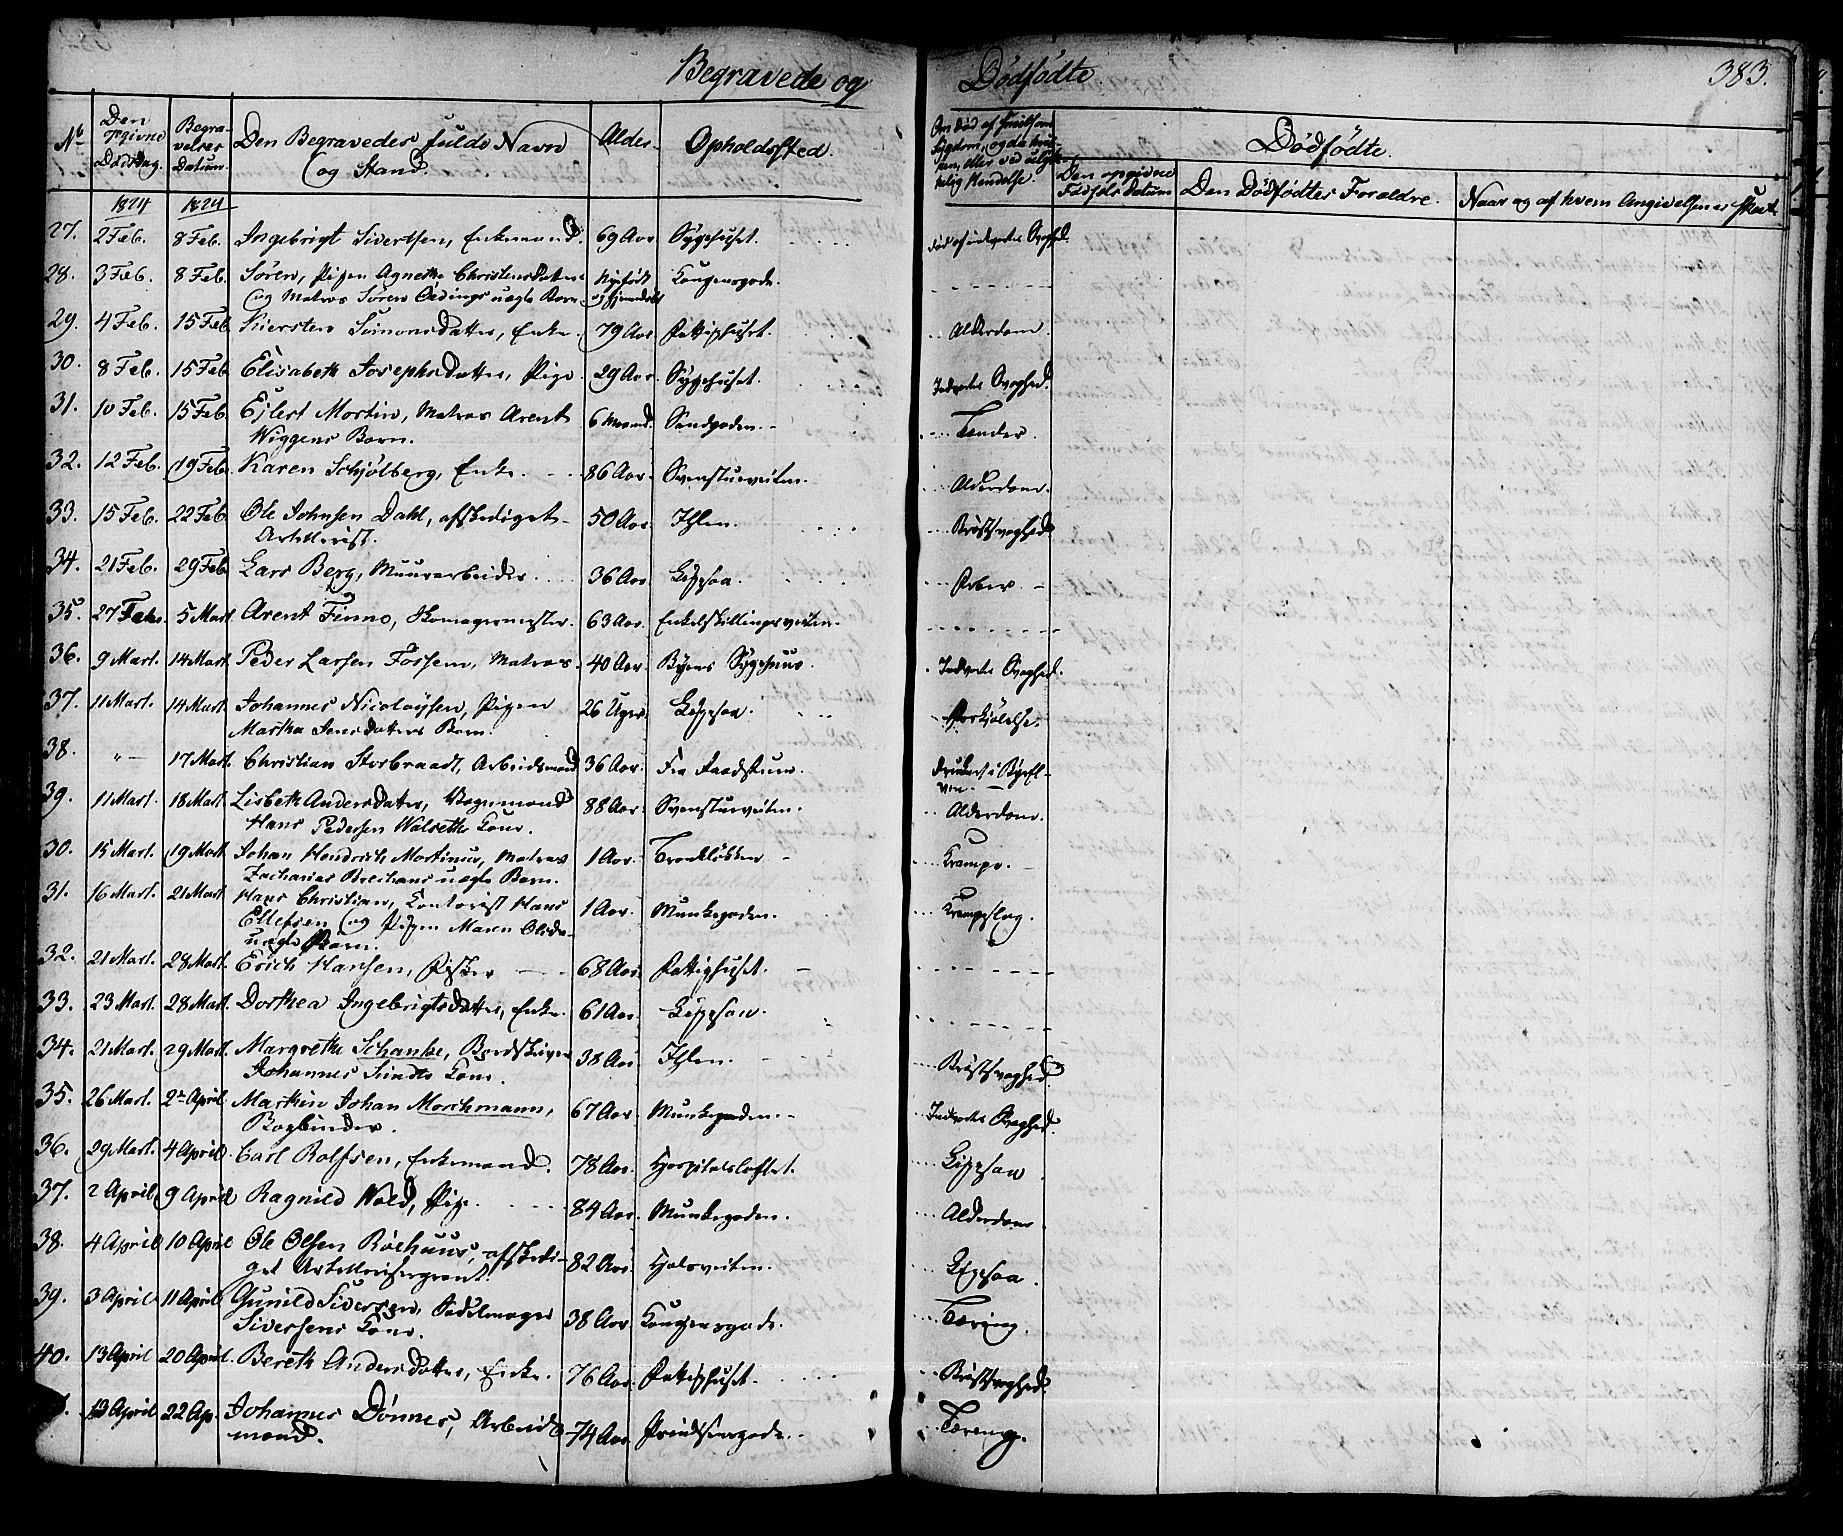 Begravede og Dødfødte. 383.
No Den opgivne Dødsdag. Begravelses Datum. Den Begravedes fulde Navn og Stand. Alder. Opholdssted. Om Død af Smitsom Sygdom, og da hvilken, eller ved ulykkelig Hendelse. Dødfødte.
Den opgivne Fødsels Datum Den Dødfødtes Foræld​re. Naar og af hvem Angivelsen er skeet.
1824 1824
27. 2 Feb. 8 Feb. Ingebrigt Sivertsen, Enkemand. 69 Aar Sygehuset. død af indvortes Svaghed.
28. 3 Feb. 8 Feb. Sören, Pigen Agnethe Christensdatter Nyefödt Kongensgade.
og Matros Sören Oedings uægte Barn og hjemdøbt
29. 4 Feb. 15 Feb. Kiersten Simonsdatter, Enke. 79 Aar. Fattighuset. Alderdom.
30. 8 Feb. 15 Feb. Elisabeth Josephsdatter, Pige. 29 Aar. Sygehuset. Indvortes Svaghed.
31. 10 Feb. 15 Feb. Ejlert Martin, Matros Arent 6 Maaned. Sandgaden. Tænder.
Wiggens Barn.
32. 12 Feb. 19 Feb. Karen Schjölberg, Enke. 86 Aar. Svensturveiten. Alderdom.
33. 15 Feb. 22 Feb. Ole Johnsen Dahl, afskediget 50 Aar. Ihlen. Brÿstsvaghed
Artillerist.
34. 21 Feb. 29 Feb. Lars Berg, Muurarbeider. 36 Aar. Leppaa. Feber.
35. 27 Feb. 5 Mart. Arent Finno, Skomagermester. 63 Aar. Enkelskillingsveiten.
36. 9 Mart. 14 Mart. Peder Larsen Fossem, Matros. 40 Aar. Byens Sygehuus. Indvortes Svaghed.
37. 11 Mart. 14 Mart. Johannes Nicolaÿsen, Pigen 26 Uger. Forkjølelse.
Martha Jensdatters Barn.
38. "— 17 Mart. Christian Storbraadt, Arbeidsmand 36 Aar. Fra druknet i Byeelven.
39. 11 Mart. 18 Mart. Lisbeth Andersdatter, Vognmand 88 Aar. Svensturveiten. Alderdom.
Hans Pedersen Walseths Kone.
30. 15 Mart. 19 Mart. Johan Hendrich Martinus, Matros 1 Aar. Krampe.
Zacharias Breihans uægte Barn.
31. 16 Mart. 21 Mart. Hans Christian, Contorist Hans 1 Aar. Munkegaden. Krampeslag.
Ellefsen og Pigen Maren Olsdr.
uægte Barn.
32. 21 Mart. 28 Mart. Erich Hansen, Fisker 68 Aar. Fattighuset.
33. 23 Mart. 28 Mart. Dorthea Ingebrigtsdatter, Enke. 61 Aar.
34. 21 Mart. 29 Mart. Margrethe Schanke, Bordskriver 38 Aar. Ihlen. Brÿstsvaghed
Johannes Sundts Kone.
35. 26 Mart. 2den April Martin Johan Morchmann, 67 Aar. Munkegaden. Indvortes Svaghed.
Bogbinder.
36. 29 Mart. 4 April Carl Rolfsen, Enkemand. 78 Aar. Hospitalsloftet.
37. 2 April 9 April Ragnild Wold, Pige. 84 Aar. Munkegaden. Alderdom
38. 4 April 10 April Ole Olsen Röehuus, afskediget 82 Aar. Hjelsveiten.
Artillerisergeant.
39. 3 April 11 April Gunild Siversen, Sadelmager 38 Aar. Kongensgade. Tæring.
Siversens Kone.
40. 13 April 20 April. Bereth Andersdatter, Enke. 76 Aar. Fattighuset. Brÿstsvaghed.
13 April 22 Ap. Johannes Dönnes, Arbeids 74 Aar. Prindsensgade. Tæring.
mand.